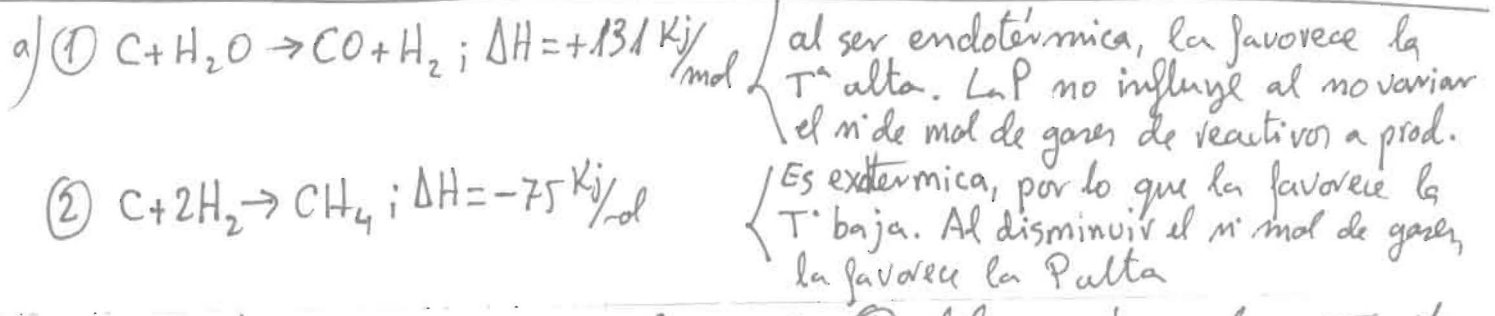 a) ① C + H₂O → CO + H₂ ; ΔH = +131 Kj/mol
al ser endotérmica, la favorece la
Tª alta. La P no influye al no variar
el nº de mol de gases de reactivos a prod.
② C + 2H₂ → CH₄ ; ΔH = -75 Kj/mol
Es exotermica, por lo que la favorece la
Tª baja. Al disminuir el nº mol de gases,
la favorece la P alta